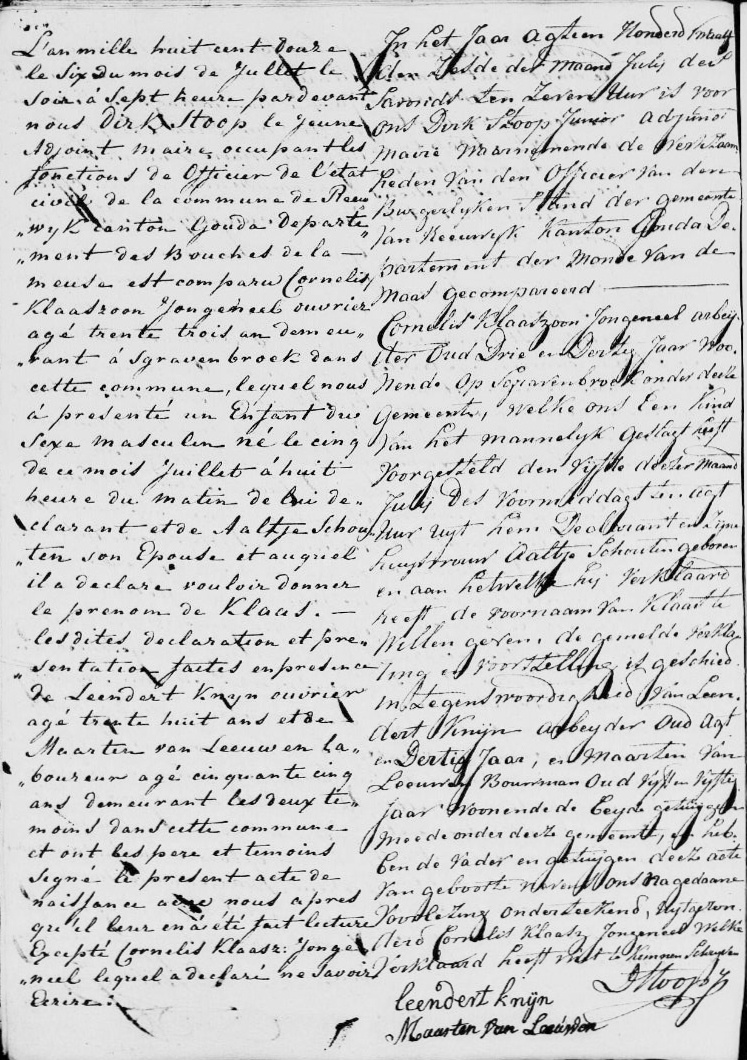 L'an mille huit cent douze
le Six du mois de Juillet le
soir á Sept heure par devant
nous Dirk Stoop le jeune
Adjoint maire occupant les
fonctions de Officier de l'état
civil de la commune de Reeu
„wijk canton Gouda Departe
„ment des Bouches de la —
meuse est comparu Cornelis
Klaaszoon Jongeneel ouvrier
agé trente trois an demeu„
„rant á Sgravenbroek dans
cette commune, lequel nous
a presenté un Enfant du
Sexe masculin né le cinq
de ce mois Juillet á huit
heure du matin de lui de„
„clarant et de Aaltje Schou
„ten son Epouse et auquel
il a declaré vouloir donner
le prenom de Klaas. —
les dites declaration et pre„
„sentation faites en presence
de Leendert Knyn ouvrier
agé trente huit ans et de
Maarten van Leeuwen La„
„boureur agé cinquante cinq
ans demeurant les deux te„
moins dans cette commune
et ont les pere et temoins
signé le present acte de
naissance avec nous apres
qu'il leur en á été fait lecture
Excepté Cornelis Klaasz: Jonge„
„neel lequel a declaré ne savoir
Ecrire.
In het Jaar agtien Honderd twaalf
den Zesde der Maand Julij des
savonds ten Zeven Uur is voor
ons Dirk Stoop Junior adjunct
Maire waarnemende de Werkzaam
heden van den Officier van den
Burgerlyken Stand der gemeente
van Reeuwyk Kanton Gouda De„
partement der Monde van de
Maas gecompareerd
Cornelis Klaaszoon Jongeneel arbeij„
der Oud Drie en Dertig Jaar Woo„
nende op Sgravenbroek onder deeze
Gemeente, welke ons Een Kind
van het mannelyk geslagt heeft
Voorgesteld den vijfde deezer Maand
Julij Des Voormiddags ten agt
Uur uyt hem Declarant en Zyne
huysvrouw Aaltje Schouten geboren
en aan hetwelke hij Verklaard
heeft de voornaam van Klaas te
Willen geven, de gemelde Verkla„
ring en Voorstelling is geschied
In tegenswoordigheid van Leen„
dert Knijn arbeyder Oud Agt
en Dertig Jaar, en Maarten Van
Leeuwen Bouwman Oud Vijf en Vyftig
Jaar Woonende de beyde getuygen
mede onder deeze gemeente, en heb„
ben de Vader en getuygen deeze acte
van geboorte nevens ons na gedaane
Voorlezing onderteekend, uytgezon„
derd Cornelis Klaasz Jongeneel Welke
Verklaard heeft niet te Kennen Schryven
DStoop Jr
leendert knijn
Maarten van Leeuwen